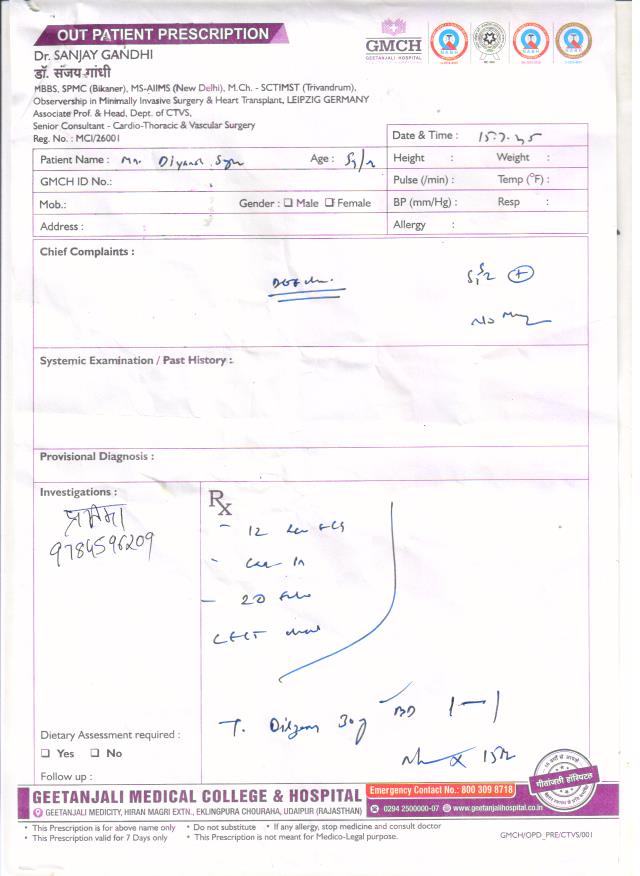 OUT PATIENT PRESCRIPTION
GMCH
GEETANJALI HOSPITAL
Dr. SANJAY GANDHI
डॉ. संजय गांधी
MBBS, SPMC (Bikaner), MS-AIIMS (New Delhi), M.Ch. - SCTIMST (Trivandrum),
Observership in Minimally Invasive Surgery & Heart Transplant, LEIPZIG GERMANY
Associate Prof. & Head, Dept. of CTVS,
Senior Consultant - Cardio-Thoracic & Vascular Surgery
Reg. No. : MCI/26001
Date & Time : 15.7.25
Patient Name : Mr. Age :
Height : Weight :
GMCH ID No.:
Pulse (/min) : Temp (°F) :
Mob.: Gender : ☐ Male ☐ Female
BP (mm/Hg) : Resp :
Address :
Allergy :
Chief Complaints :
S1S2 +
No
Systemic Examination / Past History :
Provisional Diagnosis :
Investigations :
Rx
9784596209
- 12
-
- 2D
CECT
T. 30 BD 1-1
Dietary Assessment required :
☐ Yes ☐ No
Follow up :
गीतांजली हॉस्पिटल
GEETANJALI MEDICAL COLLEGE & HOSPITAL
Emergency Contact No.: 800 309 8718
GEETANJALI MEDICITY, HIRAN MAGRI EXTN., EKLINGPURA CHOURAHA, UDAIPUR (RAJASTHAN)
0294 2500000-07 www.geetanjalihospital.co.in
• This Prescription is for above name only • Do not substitute • If any allergy, stop medicine and consult doctor
• This Prescription valid for 7 Days only • This Prescription is not meant for Medico-Legal purpose.
GMCH/OPD_PRE/CTVS/001